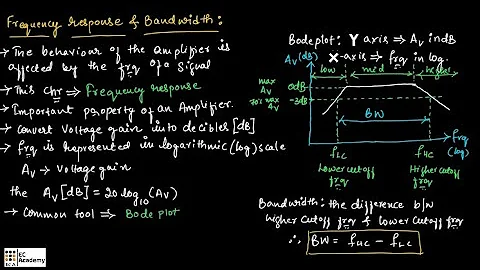 Frequency response & Bandwidth:
→ The behaviour of the amplifier is
affected by the frqy of a signal
→ This chr is → Frequency response
→ Important property of an Amplifier.
→ Convert Voltage gain into decibles [dB]
→ frqy is represented in logarithmic (log) scale
Av → Voltage gain
the Av [dB] = 20 log10 (Av)
→ Common tool ⇒ Bode plot
Bode plot: Y axis ⇒ Av in dB
X-axis ⇒ frqy in log.
Av (dB)
low mid higher
max Av 0dB
70% max Av -3dB
BW
frqy (log)
fLC fHC
Lower cutoff frqy
Higher cutoff frqy
Bandwidth: the difference b/w
higher cutoff frqy & lower cutoff frqy
∴ BW = fHC - fLC
EC Academy